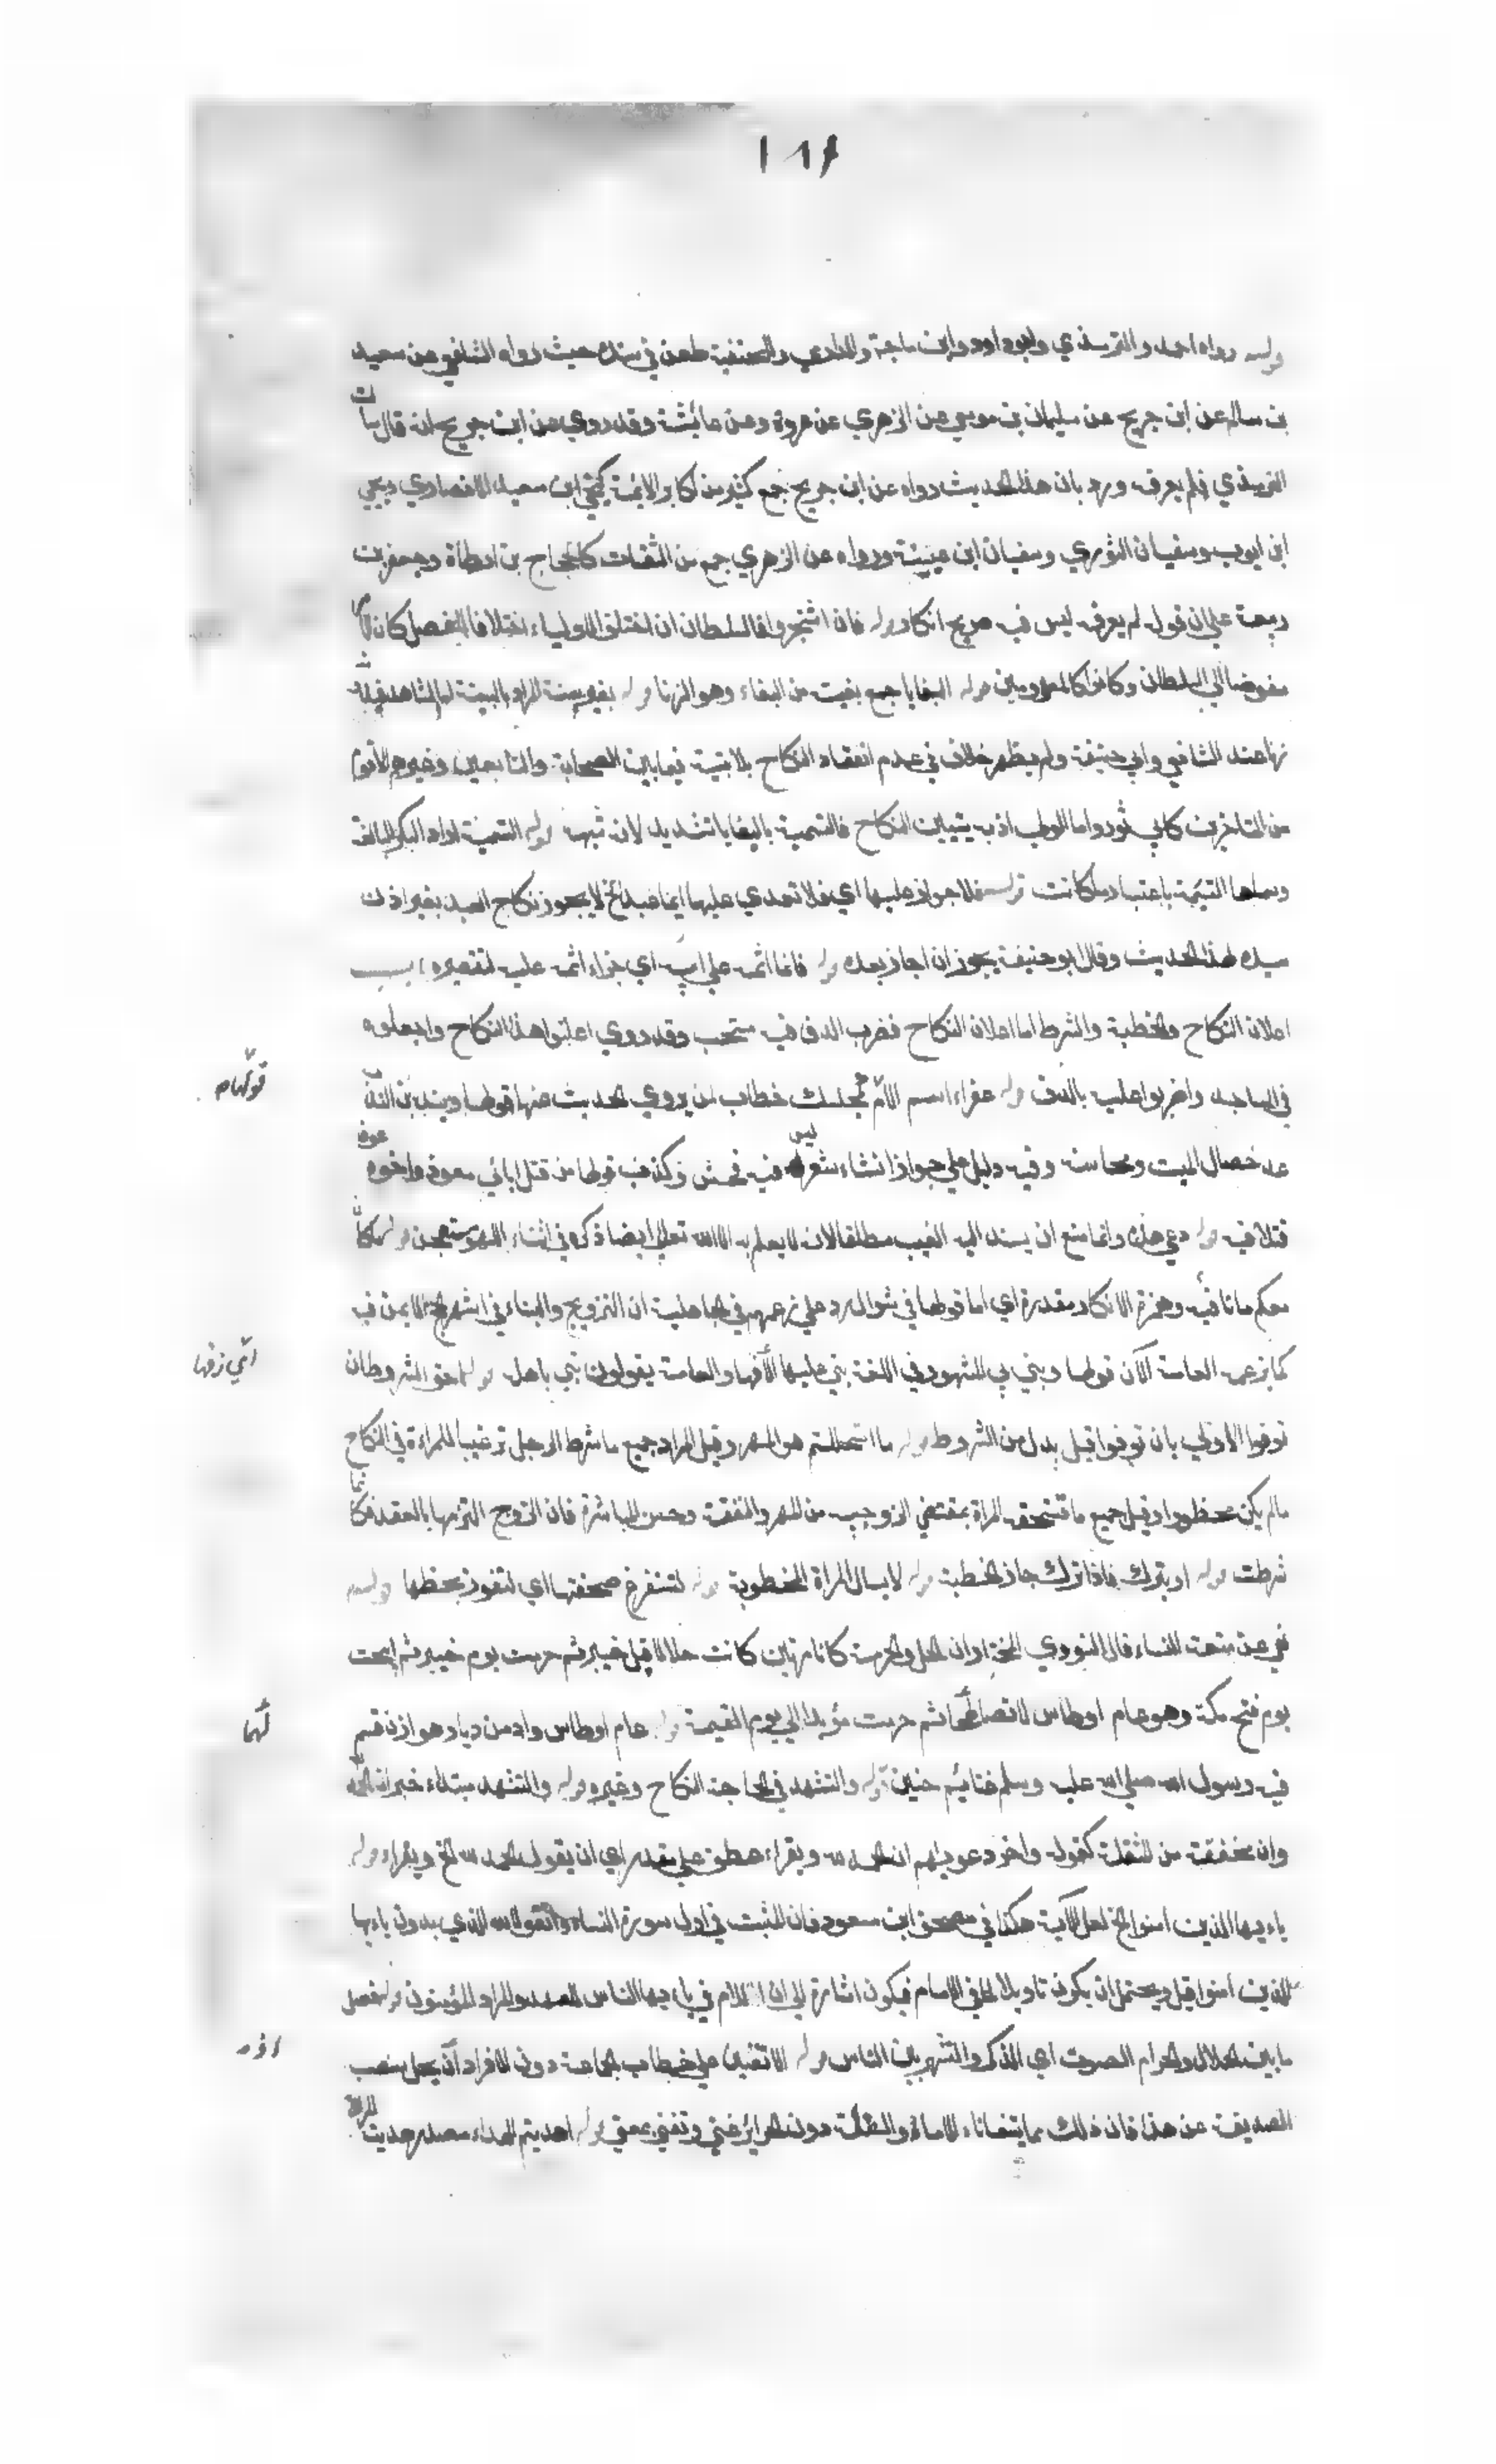 ١٨٢
قوله رواه احمد والترمذي وابوداود وابن ماجة والدارمي والحنفية طعن في سنده حيث رواه الشافعي عن سعيد
بن سالم عن ابن جريج عن سليمان بن موسي عن الزهري عن عروة وعن عائشة وقد روي عن ابن جريج انه قال سات
الزهذي فلم يعرفه ورد بان هذا الحديث رواه عن ابن جريج جمع كثير من اكابر الائمة كيحي ابن سعيد الانصاري ويحيي
ابن ايوب وسفيان الثوري وسفيان ابن عيينة ورواه عن الزهري جمع من الثقات كالحجاج بن ارطاة وجعفر بن
ربيعة علي ان قوله لم يعرفه ليس فيه صريح انكار قوله فان اشتجروا فالسلطان ان اختلف الاولياء اختلافا للفصل كان
مفوضا الي السلطان وكانوا كالمعدومين قوله البغايا جمع بغيت من البغاء وهو الزنا قوله بغير بينة المراد بالبينة اما الشاهد
زنا عند الشافعي وابي حنيفة ولم يظهر خلاف في عدم انعقاد النكاح بلا بينة فيما بين الصحابة والتابعين وغيرهم الا قوم
من المتاخرين كابي ثور واما الولي اذ به يتبين النكاح فالتسمية بالبغايا تشديد لان شبهة قوله اليتيمة اراد البكر البالغة
وسماها اليتيمة باعتبار ما كانت قوله فلا جواز عليها اي فلا تعدي عليها ايما عبد الخ لا يجوز نكاح العبد بغير اذن
سيده لهذا الحديث وقال ابو حنيفة يجوز ان اجاز بعده قوله فانما اثمه علي ابيه اي جزاء اثمه عليه لتقصيره بسبب
اعلان النكاح والخطبة والشرط اما اعلان النكاح فضرب الدف فيه مستحب وقد روي اعلنوا هذا النكاح واجعلوه
في المساجد واضربوا عليه بالدف قوله عفراء اسم الام كمجلسك خطاب لمن يروي الحديث عنها قولها ويندبن الندب
عد خصال الميت ومحاسنه وفيه دليل علي جواز انشاء شعر ليس فيه فحش وكذب قولها من قتل ابائي معوذ واخوه عوف
قتلا فيه قوله دعي هذه وانما منع ان يسند اليه الغيب مطلقا لانه لا يعلم به الا الله تعالي ايضا ذكره في اثناء اللهو مستهجن قوله ما كان
معكم ما نافية وهمزة الانكار مقدرة اي اما قولها في شوال رد علي زعمهم في الجاهلية ان التزويج والبناء في اشهر الحج لا يمن فيه
كما يزعم العامة الآن قولها وبني بي المشهور في اللغة بني عليها اي زفها والعامة يقولون بني باهله قوله احق الشروط ان
توفوا الاولي بان توفوا قيل بدل من الشروط قوله ما استحللتم هو المهر وقيل المراد جميع ما شرط الرجل ترغيبا للمراءة في النكاح
ما لم يكن محظورا وقيل جميع ما تستحقه المراة بمقتضي الزوجيه من المهر والنفقة وحسن المباشرة فان الزوج التزمها بالعقد فكانما
شرطت قوله او يترك فاذا ترك جاز الخطبة قوله لا يسال المراة المخطوبة قوله لتستفرغ صحفتها اي لتفوز بحظها قوله
نهي عن متعة النساء قال النووي المختار ان الحل والحرمة كانا مرتين كانت حلالا قبل خيبر ثم حرمت يوم خيبر ثم ابيحت
يوم فتح مكة وهو عام اوطاس لاتصالهما ثم حرمت مؤبدا الي يوم القيمة قوله عام اوطاس واد من ديار هوازن قسم
فيه رسول الله صلي الله عليه وسلم غنايم حنين قوله والتشهد في الحاجة النكاح وغيره قوله والتشهد مبتداء خبره ان الحمد
وان مخففة من المثقلة كقوله واخر دعويهم ان الحمد لله ويقراء عطف علي مقدر اي ان يقول الحمد لله الخ ويقراء قوله
ياءيها الذين امنوا الخ لعل الآية هكذا في مصحف ابن مسعود فان المثبت في اول سورة النساء واتقوا الله الذي بدون ياءيها
الذين امنوا قيل ويحتمل ان يكون تاويلا لما في الامام فيكون اشارة الي ان اللام في ياءيها الناس للعهد والمراد المؤمنون قوله فصل
ما بين الحلال والحرام الصوت اي الذكر والتشهير بين الناس قوله الاتغنين علي خطاب الجماعة دون الافراد
الصديقة عن هذا فان ذلك مما يتعاناه الاماء والسفلة دون الحرائر غني وتغني بمعني قوله اهديتم الهداء مصدر هديت المراة
قولهام
اي زفها
لهما